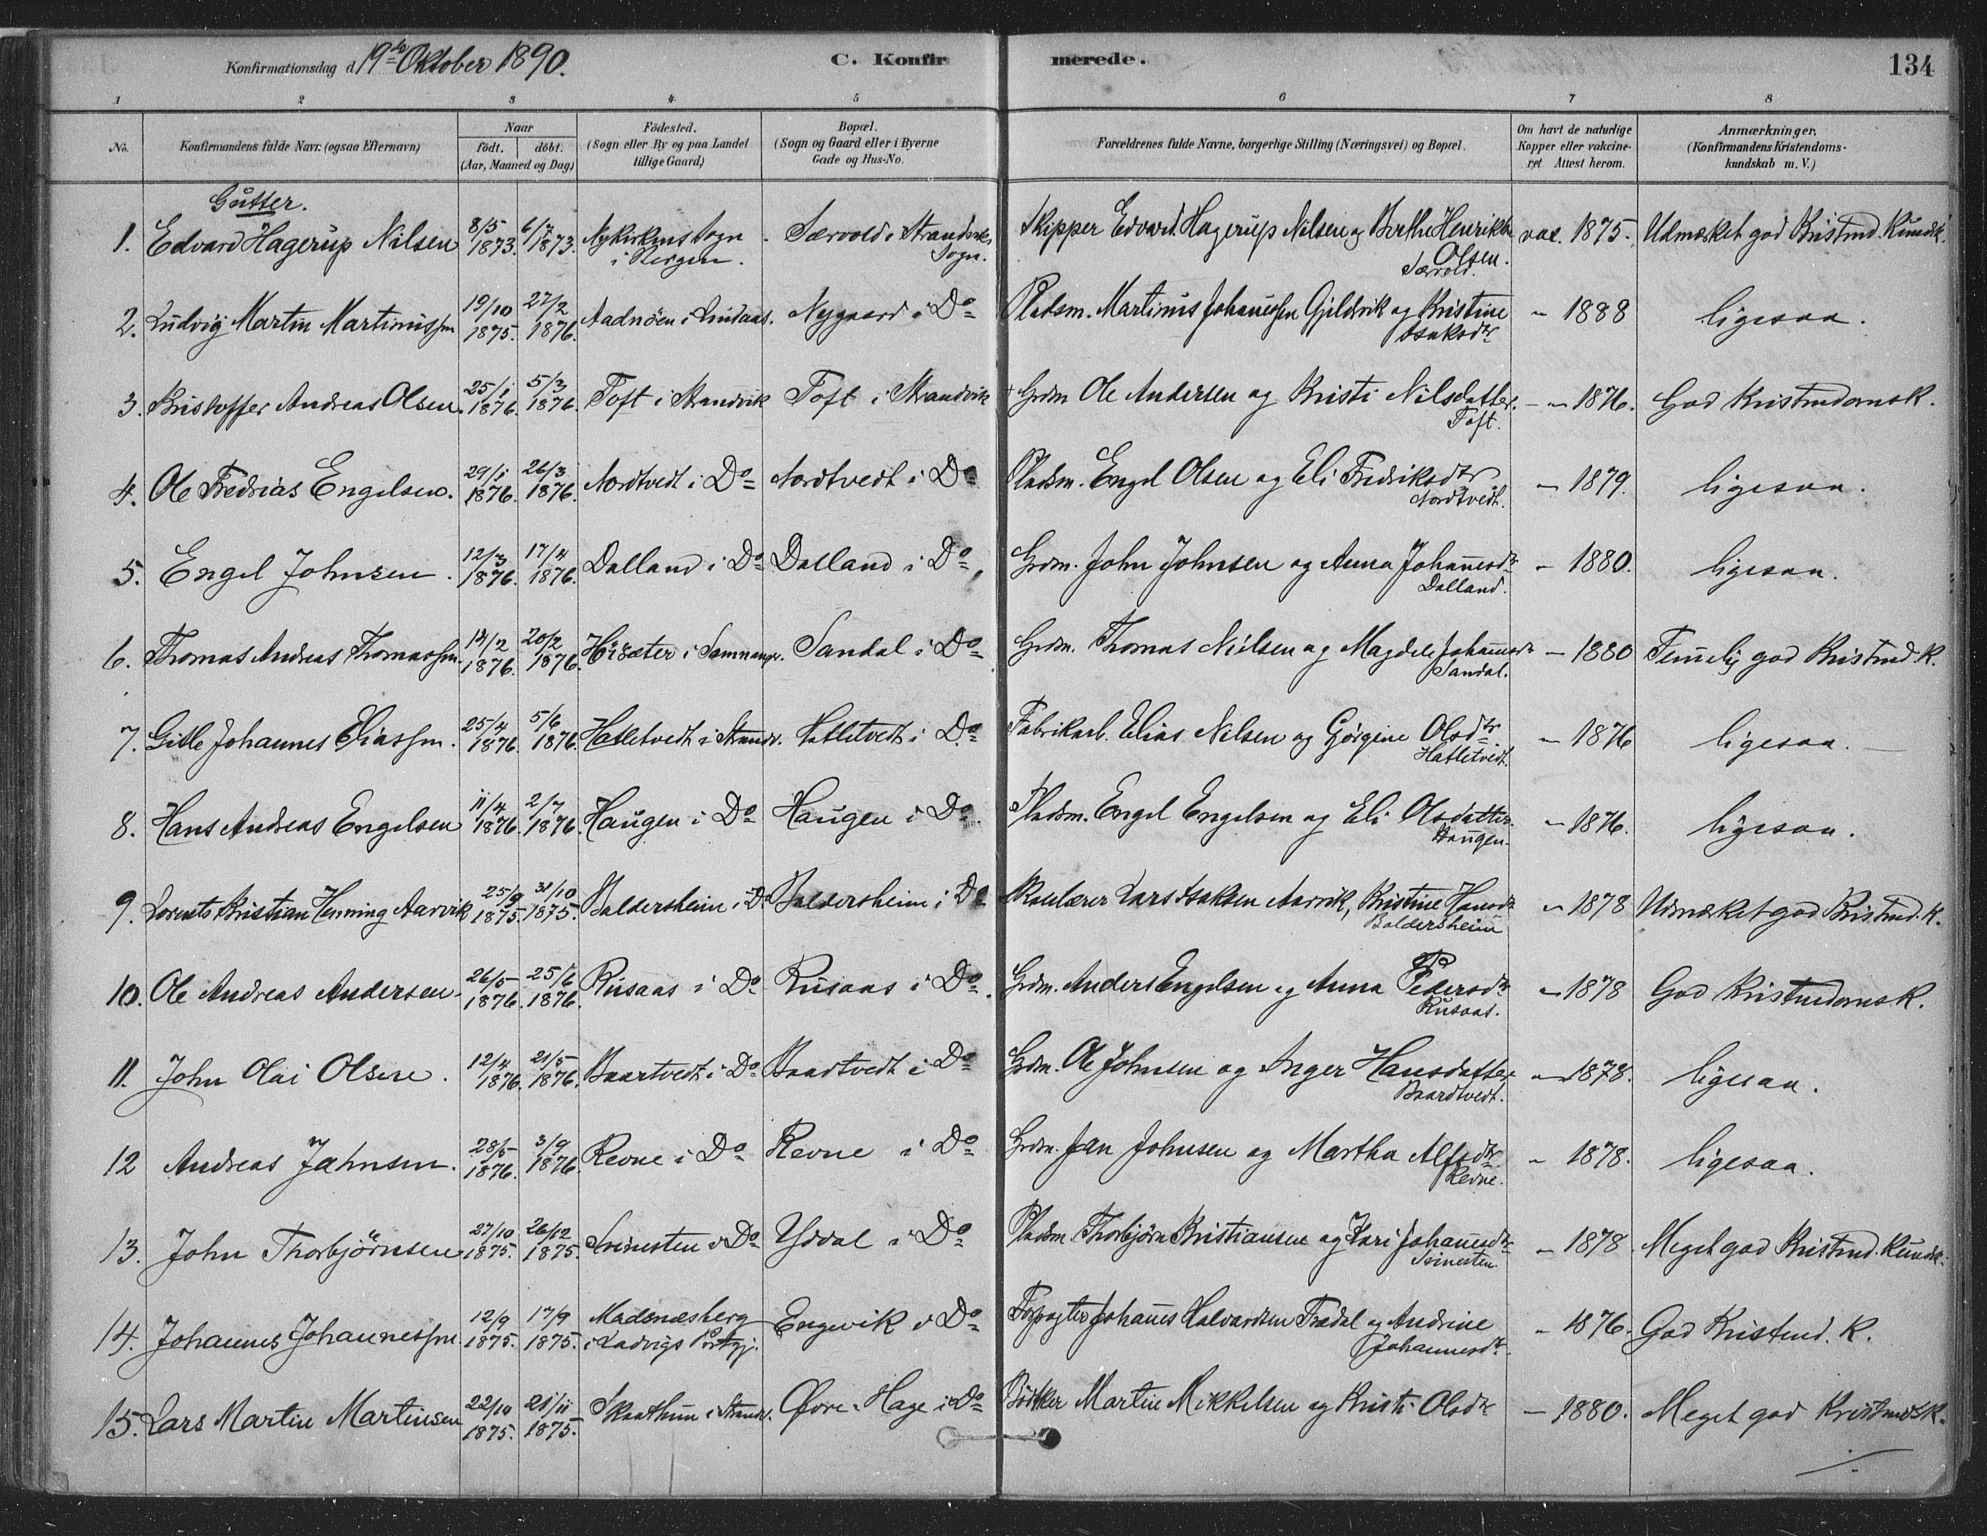 Konfirmationsdag d. 19de Oktober 1890.
C. Konfirmerede.
134
1 2 3 4 5 6 7 8
No.
Konfirmandens fulde Navn (ogsaa Efternavn)
Naar
født. døbt.
(Aar, Maaned og Dag)
Födested.
(Sogn eller By og paa Landet tillige Gaard)
Bopæl.
(Sogn og Gaard eller i Byerne Gade og Hus-No.
Forældrenes fulde Navne, borgerlige Stilling (Næringsvei) og Bopæl.
Om havt de naturlige Kopper eller vakcineret Attest herom.
Anmærkninger.
(Konfirmandens Kristendomskundskab m. V.)
Gutter.
1. Edvard Hagerup Nilsen 8/5 1873. 6/7 1873. Nykirkens Sogn i Bergen. Særvold i Strandviks Sogn. Skipper Edvard Hagerup Nilsen og Berthe Henrikke Olsen. Særvold. vac. 1875. Udmærket god Kristend. Kundsk.
2. Ludvig Martin Martinussen 19/10 1875. 27/2 1876. Aadnöen i Lindaas. Nygaard i Do Pladsm. Martinus Johannessen Gjildvik og Kristine Isaksdtr " 1888 ligesaa.
3. Kristoffer Andreas Olsen. 25/1 1876. 5/3 1876. Toft i Strandvik Toft i Strandvik + Grdm Ole Andersen og Kristi Nilsdatter. Toft. " 1876. God Kristendomsk.
4. Ole Fredrias Engelsen. 29/1 1876. 26/3 1876. Nordtvedt i Do Nordtvedt i Do Pladsm. Engel Olsen og Eli Fredriksdtr Nordtvedt. " 1879. ligesaa.
5. Engel Johnsen. 12/3 1876. 17/4 1876. Dalland i Do Dalland i Do Grdm. John Johnsen og Anna Johannesdtr Dalland. " 1880. ligesaa.
6. Thomas Andreas Thomassen. 14/2 1876. 20/2 1876. Hisæter i Samnanger. Sandal i Do Grdm. Thomas Nielsen og Magdele Johannesdtr Sandal. " 1880 Temelig god Kristend. K.
7. Gitle Johannes Eliassen. 25/4 1876. 5/6 1876. Hatletvedt i Strandv. Hatletvedt i Do Fabrikarb. Elias Nilsen og Gjørgine Olsdtr Hatletvedt. " 1876 ligesaa.
8. Hans Andreas Engelsen 11/4 1876. 2/7 1876. Haugen i Do Haugen i Do Pladsm. Engel Engelsen og Eli Olsdatter. Haugen. " 1876. ligesaa.
9. Lorents Kristian Henning Aarvik 25/9 1875. 31/10 1875. Baldersheim i Do Baldersheim i Do Skolelærer Lars Isaksen Aarvik, Kristine Hansdtr Baldersheim " 1878 Udmærket god Kristend. K.
10. Ole Andreas Andersen 26/5 1876. 25/6 1876. Rusaas i Do Rusaas i Do Grdm. Anders Engelsen og Anna Pedersdtr Rusaas. " 1878 God Kristendomsk.
11. John Olai Olsen. 12/4 1876. 21/5 1876. Baartvedt i Do Baardtvedt i Do Grdm. Ole Johnsen og Inger Hansdatter Baardtvedt. " 1878. ligesaa.
12 Andreas Jahnsen. 28/5 1876. 3/9 1876. Revne i Do Revne i Do Grdm. Jan Johnsen og Martha Alfsdtr. Revne. " 1878. ligesaa.
13. John Thorbjørnsen 27/10 1875. 26/12 1875. Svinesten i Do Ydal i Do Pladsm. Thorbjörn Kristiansen og Kari Johannesdtr Svinesten. " 1878. Meget god Kristend. Kundsk.
14. Johannes Johannessen 12/9 1875. 17/9 1875. Madsnæsberg i Ladvigs Prstgj. Engevik i Do Forpagter Johannes Halvardsen Tredal og Andrine Johannesdtr. " 1876. God Kristend. K.
15. Lars Martin Martinsen 22/10 1875. 21/11 1875. Skaathun i Strandv. Øvre-Hage i Do Bödker Martin Mikkelsen og Kristi Olsdtr " 1880. Meget god Kristendsk.